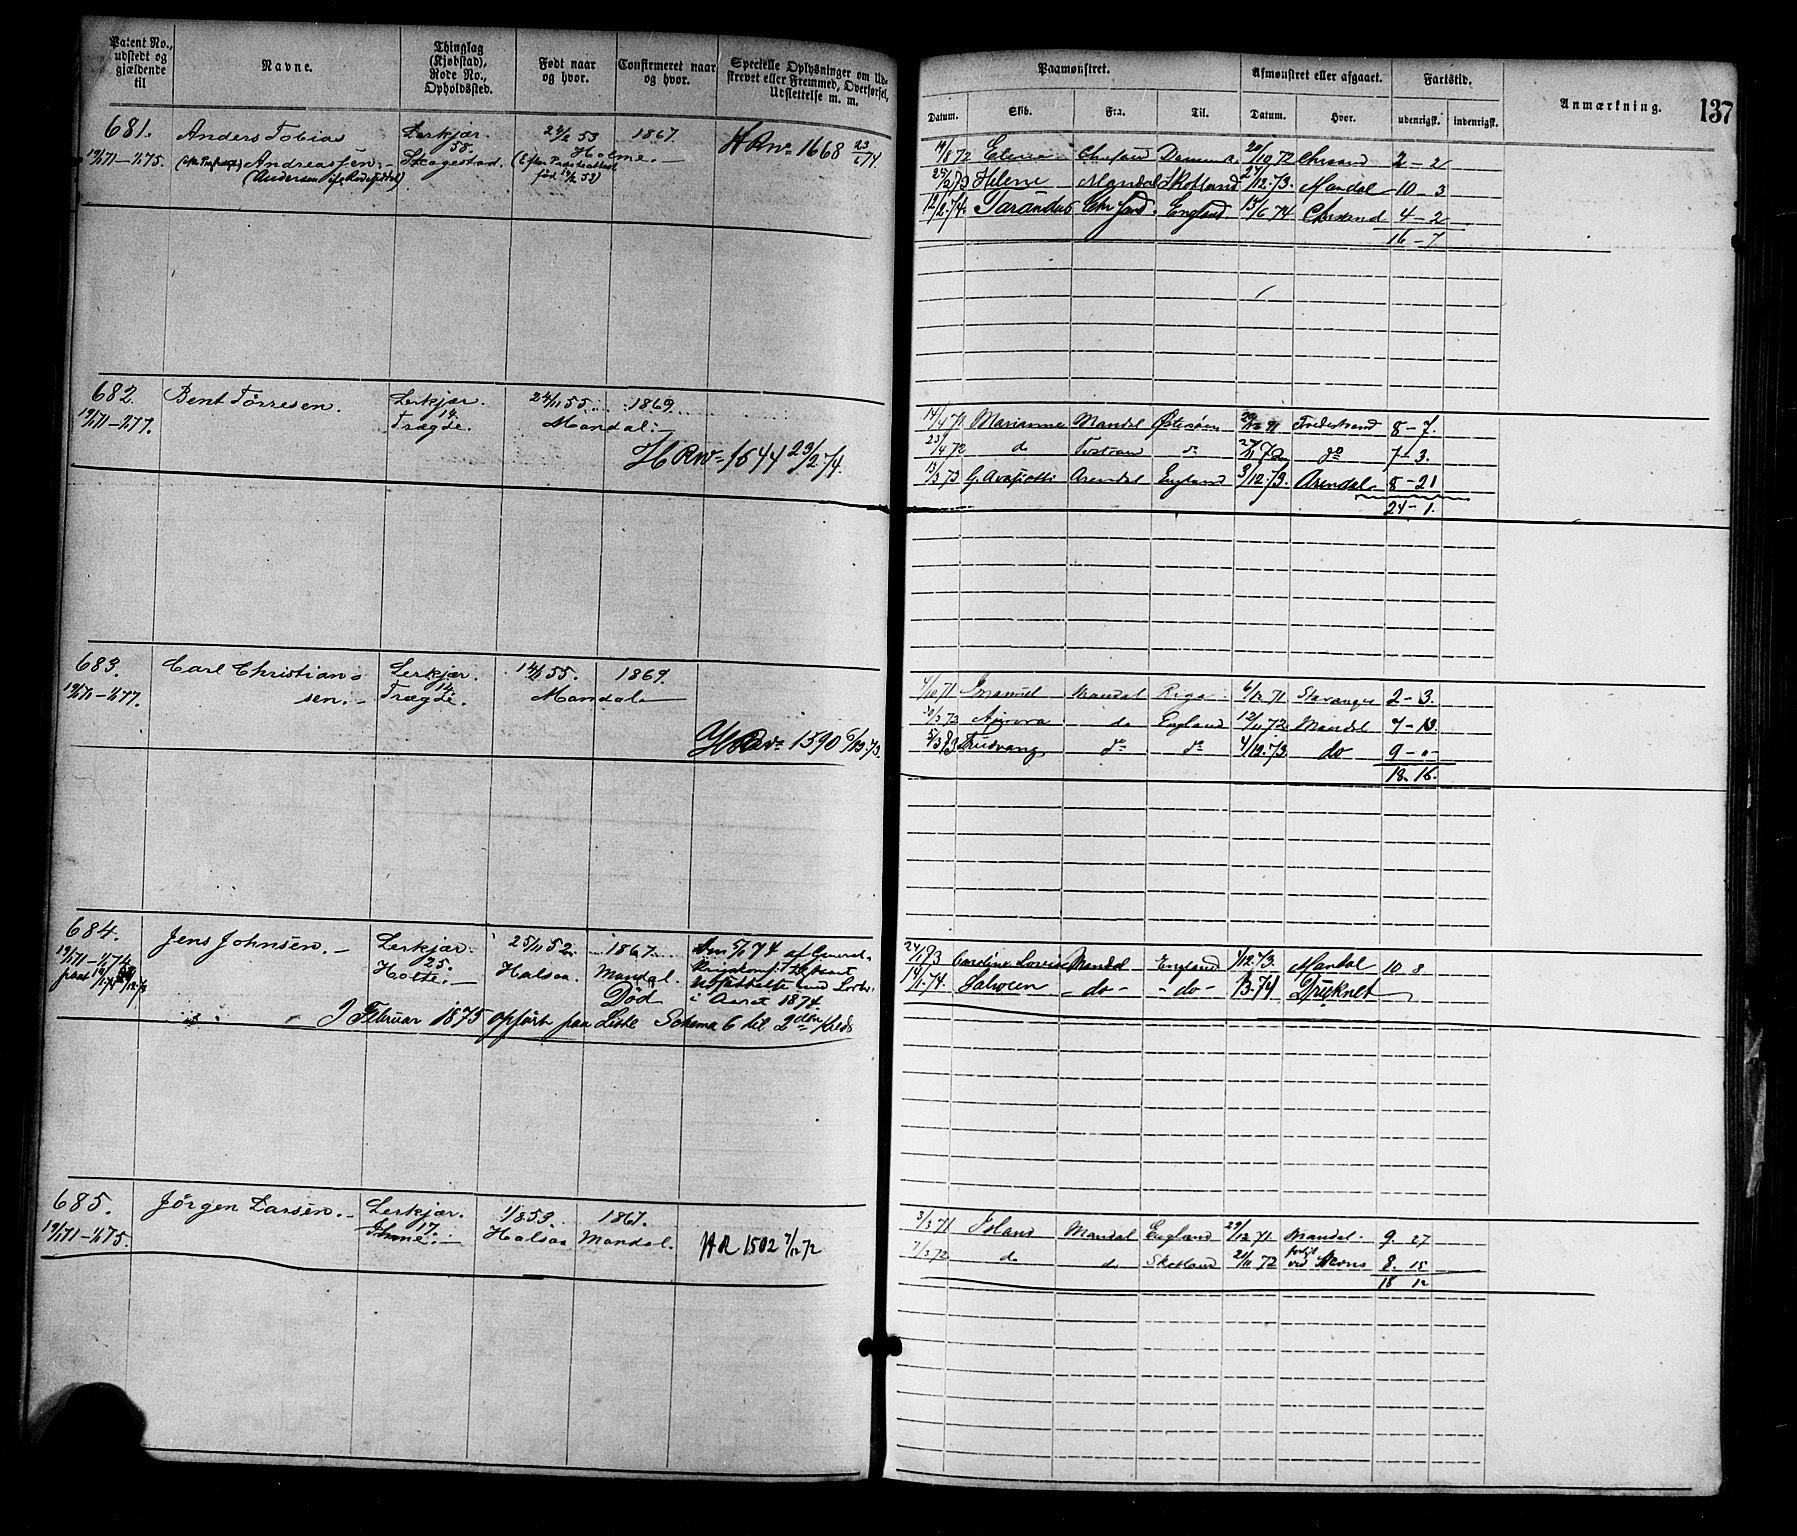 Patent No., udstedt og gjældende til
Navne.
Thinglag (Kjøbstad), Rode No., Opholdssted.
Født naar og hvor.
Confirmeret naar og hvor.
Specielle Oplysninger om Udskrevet eller Fremmed, Overførsel, Udslettelse m. m.
Paamønstret.
Afmønstret eller afgaaet.
Fartstid.
Anmærkning.
137
Datum.
Skib.
Fra.
Til.
Datum.
Hvor.
udenrigsk.
indenrigsk.
681.
Anders Tobias
Lerkjær.
24/2 53
1867.
H R No 1668 23/6 74
19/1 71 - 1/1 75.
Andreassen. -
58.
Skagestad.
Holme. -
(Andersen
født 14/2 52)
/8 72
Mandal
Dannm.
/10 72
Chrsand
2 - 2
Helene
Mandal
Skotland
/12. 73.
Mandal
10 - 3
12/2. 74.
Tarandus
Chr sand.
England
15/6 74
Chrsand
4 - 2
16 - 7
682.
Bent Tørresen.
Lerkjær.
24/11 55.
1869.
19/1 71 - 1/1 77.
14.
Trægde.
Mandal. -
H R No 1644 23/2 74.
14/4 71
Marianne
Mandal
Østersøen
Tvedestrand
8 - 7.
23/4 72
do
do
do
7 - 3.
13/3 73
Arendal
England
3/12. 73.
Arendal.
8 - 21
24 - 1.
683.
Carl Christian-
Lerkjær.
14/11 55.
1869.
19/1 71 - 1/1 77.
sen. -
14.
Trægde.
Mandal
H R No 1590 6/12. 73.
/10 71
Emanuel
Mandal
Riga
6/12 71
Stavanger
2 - 3.
30/3 72
Aurora
do
England
12/11 72
Mandal
7 - 13.
5/3 73
Fredvang
do
do
4/12. 73.
do
9 - 0 -
18. 16.
684.
Jens Johnsen. -
Lerkjær.
25/11 52.
1867.
19/1 71 - 1/1 74.
25.
Holte. -
Halsaa.
Mandal.
Død
i Aaret 1874.
I Februar 1875 opført paa Liste Schema 6 til 2den Kreds
24/1 73
Caroline Lovise
Mandal
England
1/12. 73.
Mandal
10 8
14/1. 74.
do
do
/3. 74
Druknet
685.
Jørgen Larsen. -
Lerkjær.
1/8 53.
1867.
19/1 71 - 1/1 75.
17.
Halsaa
Mandal.
H R 1502 7/12 72
3/3 71
Island
Mandal
England
29/12 71.
Mandal.
9. 27
7/3 72
do
do
Skotland
21/11 72
forlist ved
8. 15
18 12